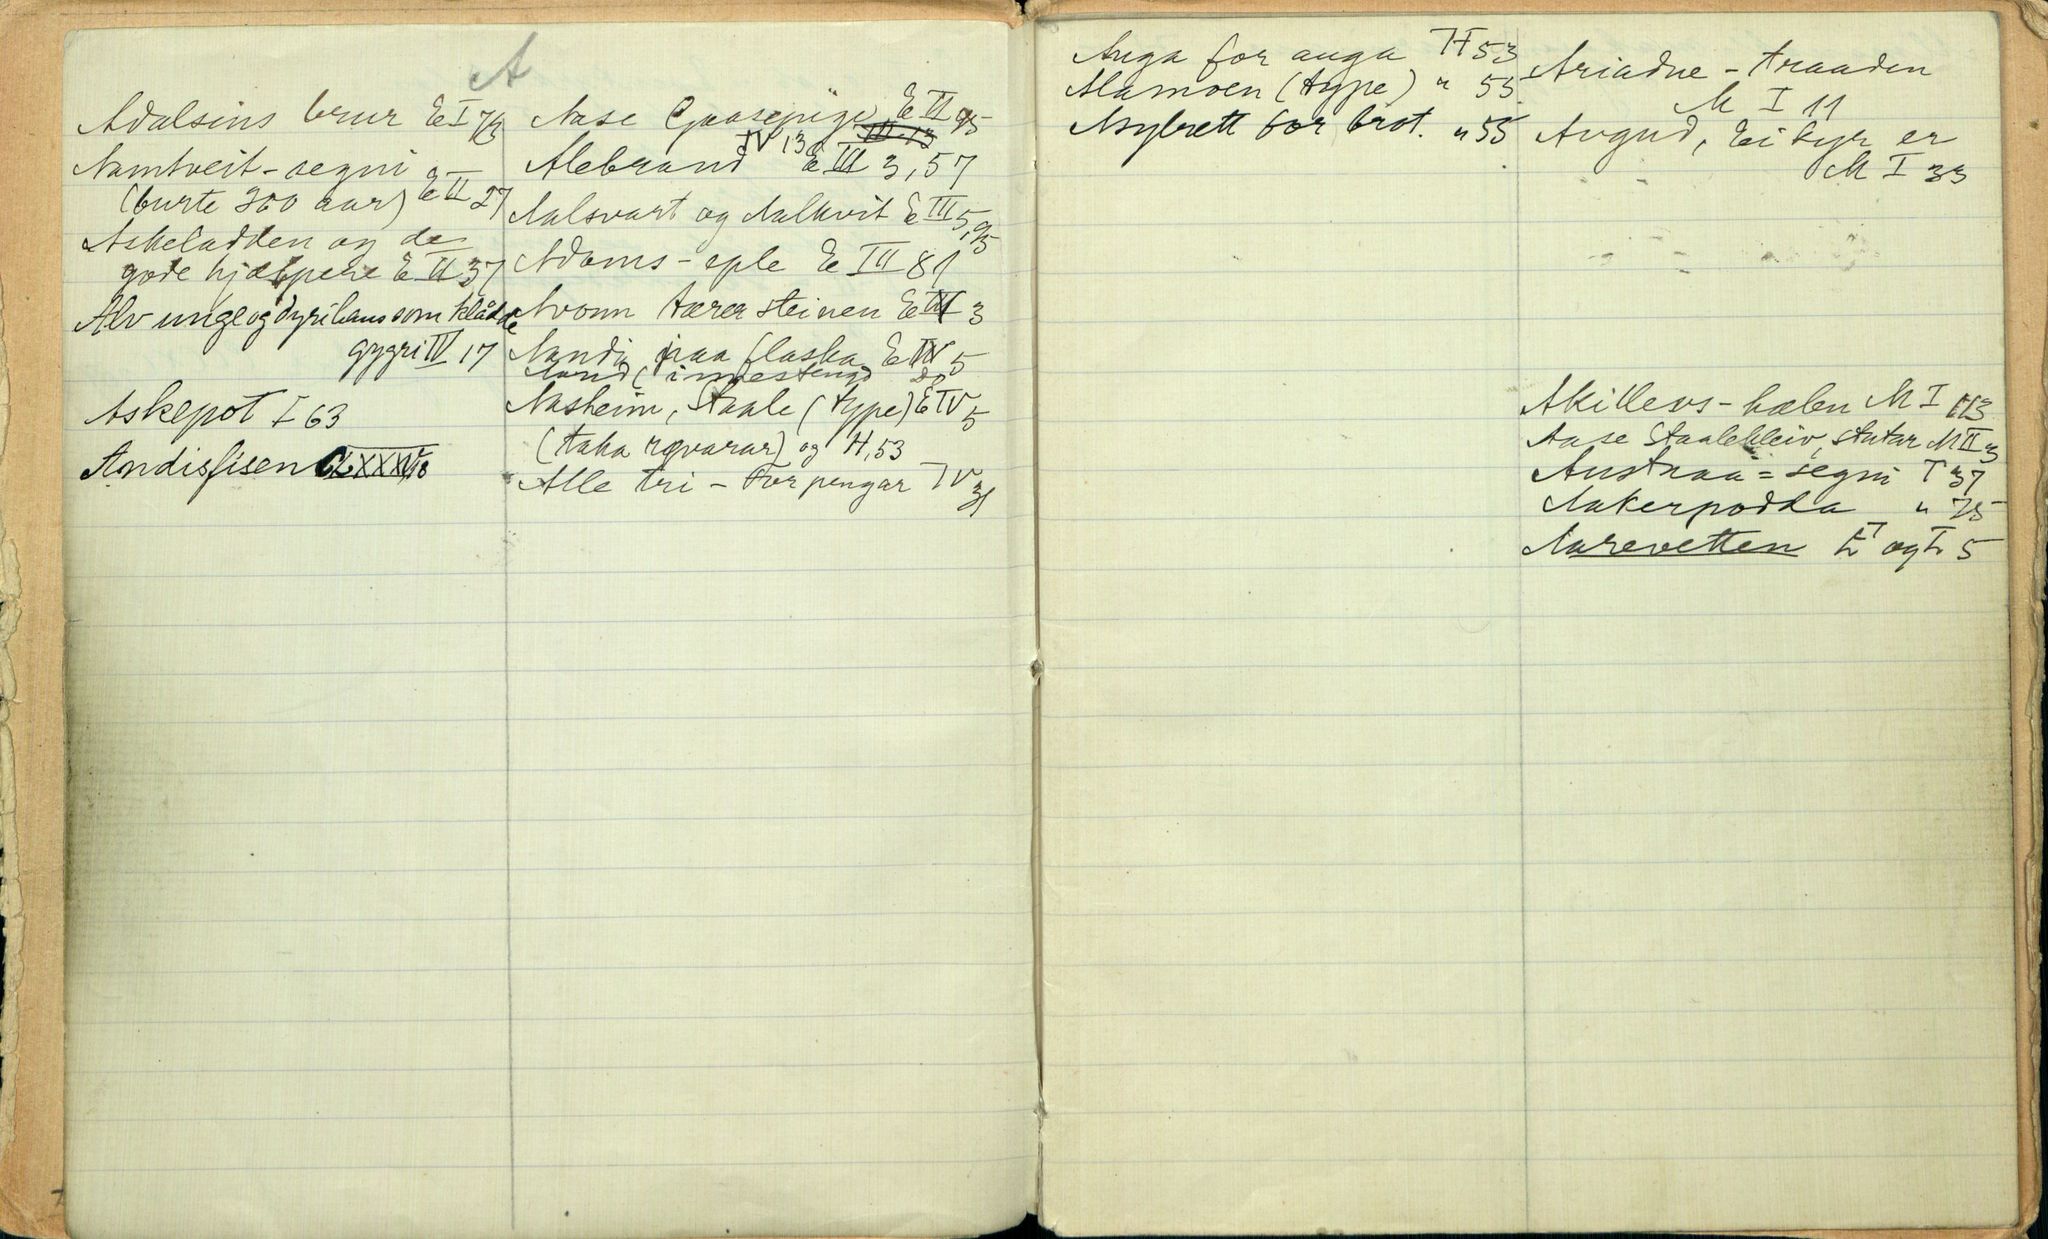 A
Adalsins brur E I 73
Aamtveit-segni
(burte 300 aar) E II 27
Askeladden og de
gode hjælpere E II 37
Alv unge og dyrihaus som klådde
gygri IV 17
Askepot I 63
Andisfisen CLXXXIV 18
Aase Gaasepige E II 95
IV 13
Alebrand E III 3, 57
Aalsvart og Aalkvit E III 5, 95
Adams-eple E III 81
Avonn tærer steinen E III 3
Aandi paa flaska E IV 5
Aand (innestengd do
Aasheim, Staale (type) E IV 5
(taka rævarar) og H, 53
Alle tri - For pengar IV 31
Auga for auga H 53
Alamoen (type) " 55
Asybrett for brot. " 55
Ariadne-traaden
M I 11
Avgud, Ei kyr er
M I 33
Akillevs-hælen M I 113
Aase Staalekleiv, stutar M II 3
Austraa=segni T 37
Aakerpodda " 75
Aarevetten L og L 5